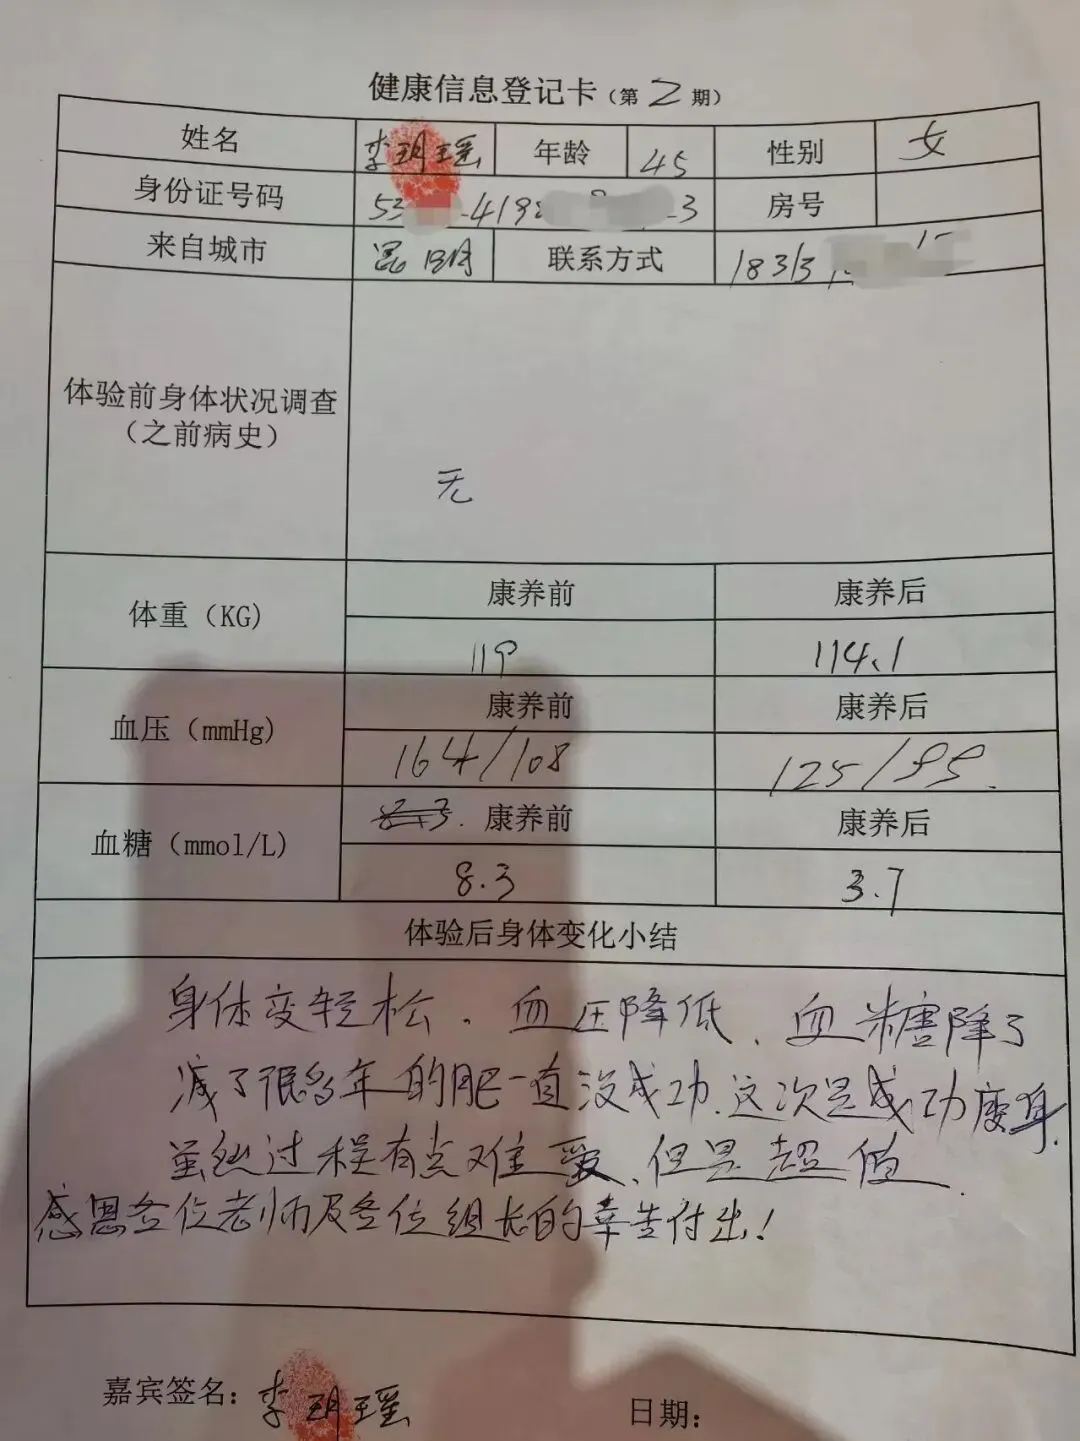 健康信息登记卡（第 2 期）
姓名 李玥瑶 年龄 45 性别 女
身份证号码 53 419 3 房号
来自城市 昆明 联系方式 18313
体验前身体状况调查
（之前病史）
无
体重（KG） 康养前 康养后
119 114.1
血压（mmHg） 康养前 康养后
164/108 125/99.
血糖（mmol/L） 康养前 康养后
8.3 3.7
体验后身体变化小结
身体变轻松、血压降低、血糖降了
减了很多年的肥一直没成功.这次是成功瘦身.
虽然过程有点难受、但是超值.
感恩各位老师及各位组长的幸告付出!
嘉宾签名：李玥瑶 日期：